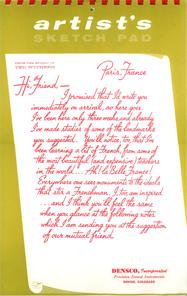 artist's
SKETCH PAD
FROM THE STUDIO OF
Paris, France
Hi, Friend—
I promised that I'd write you
immediately on arrival, so here goes.
I've been here only three weeks and already
I've made studies of some of the landmarks
you suggested. You'll notice, too, that I've
been learning a lot of French from some of
the most beautiful (and expensive) teachers
in the world... Ah! La Belle France!
Everywhere one sees monuments to the ideals
that are a Frenchman. I, too, am inspired
... and I think you'll feel the same
when you glance at the following notes
which I am sending you at the suggestion
of our mutual friend.
DENSCO, Incorporated
Precision Dental Instruments
DENVER, COLORADO